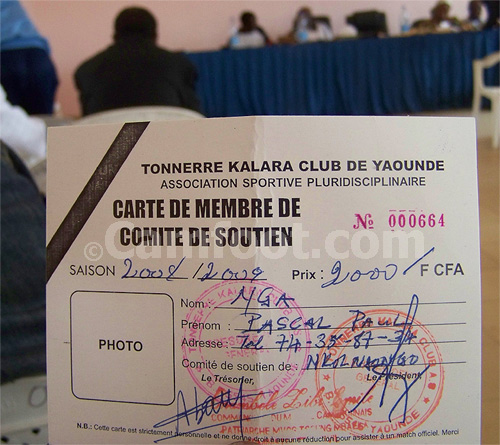 TONNERRE KALARA CLUB DE YAOUNDE
ASSOCIATION SPORTIVE PLURIDISCIPLINAIRE
CARTE DE MEMBRE DE
COMITE DE SOUTIEN
№ 000664
©Camfoot.com
SAISON 2008 / 2009 Prix : 2000 F CFA
Nom : NGA
Prénom : PASCAL PAUL
Adresse : Tel 74-35-87-34
Comité de soutien de : NKOLNDONGO
PHOTO
Le Trésorier, Le Président
N.B.: Cette carte est strictement personnelle et ne donne droit à aucune réduction pour assister à un match officiel. Merci